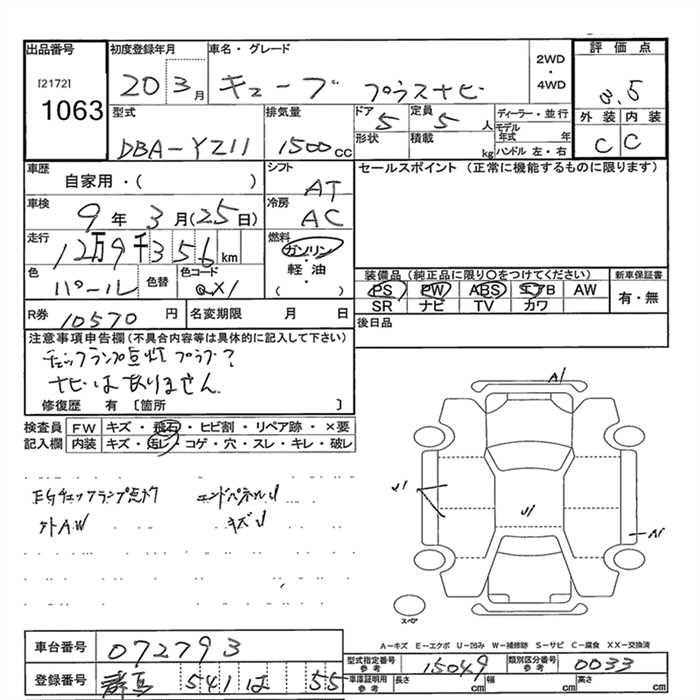 出品番号 初度登録年月 車名・グレード 2WD・4WD 評価点
[2172]
1063
20 3月 キューブ プラスナビ 3.5
型式 排気量 ドア 定員 ディーラー・並行 外装 内装
DBA-YZ11 1500cc 5 5人 モデル年式 年 C C
形状 積載 kg ハンドル 左・右
車歴 シフト セールスポイント (正常に機能するものに限ります)
自家用・( ) AT
車検 冷房
9年3月(25日) AC
走行 燃料
12万9千356km ガソリン・軽油 ( )
色 色替 色コード 装備品 (純正品に限り○をつけてください) 新車保証書
パール QX1 PS PW ABS エアB AW 有・無
SR ナビ TV カワ
R券 10570円 名変期限 月 日 後日品
注意事項申告欄(不具合内容等は具体的に記入して下さい)
チェックランプ点灯 プラグ?
ナビはありません
修復歴 有 〔箇所 〕
検査員 FW キズ・飛石・ヒビ割・リペア跡・×要
記入欄 内装 キズ・汚レ・コゲ・穴・スレ・キレ・破レ
A1
U1 U1 A1
EGチェックランプ点灯 エンドパネルU
外AW キズU
スペア
A−キズ E−エクボ U−凹み W−補修跡 S−サビ C−腐食 XX−交換済
車台番号 072793 型式指定番号 参考 15049 類別区分番号 参考 0033
登録番号 群馬 541 は 55 車庫証明用 参考 長さ cm 幅 cm 高さ cm